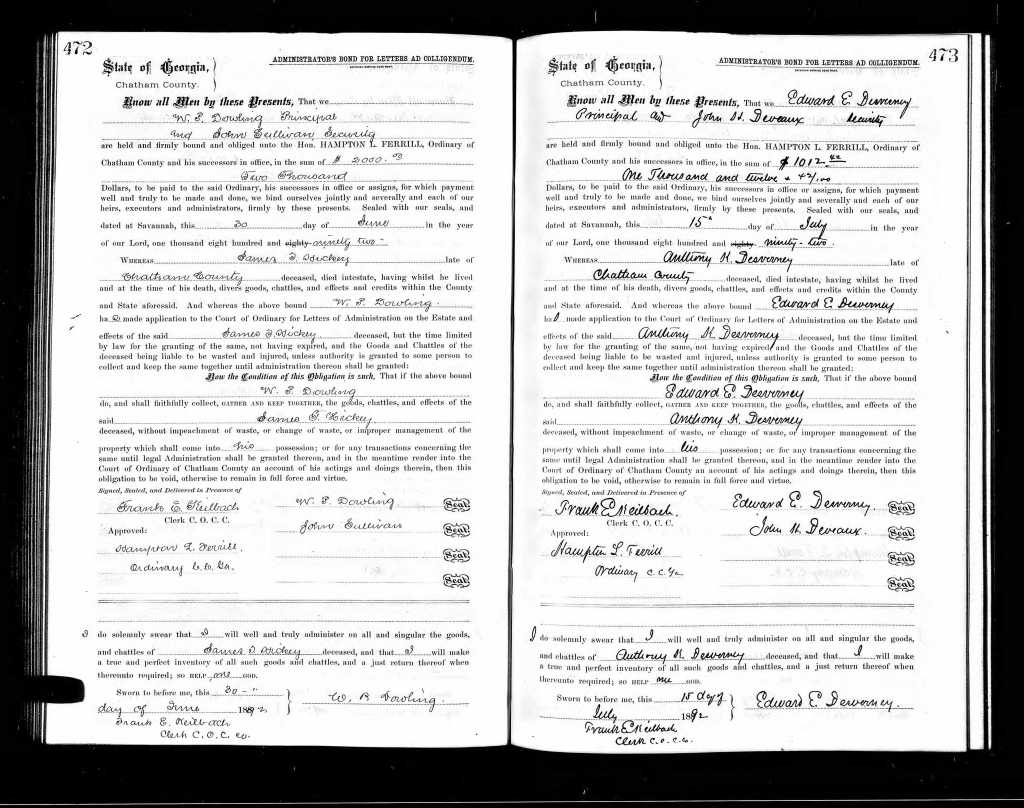 472
State of Georgia,
Chatham County.
ADMINISTRATOR'S BOND FOR LETTERS AD COLLIGENDUM.
Know all Men by these Presents, That we
Dowling Principal
and John Sullivan Security
are held and firmly bound and obliged unto the Hon. HAMPTON L. FERRILL, Ordinary of
Chatham County and his successors in office, in the sum of $ 2000.
Two Thousand
Dollars, to be paid to the said Ordinary, his successors in office or assigns, for which payment
well and truly to be made and done, we bind ourselves jointly and severally and each of our
heirs, executors and administrators, firmly by these presents. Sealed with our seals, and
dated at Savannah, this 30 day of June in the year
of our Lord, one thousand eight hundred and eighty ninety two -
WHEREAS James Hickey late of
Chatham County deceased, died intestate, having whilst he lived
and at the time of his death, divers goods, chattles, and effects and credits within the County
and State aforesaid. And whereas the above bound Dowling.
ha s made application to the Court of Ordinary for Letters of Administration on the Estate and
effects of the said James Hickey deceased, but the time limited
by law for the granting of the same, not having expired, and the Goods and Chattles of the
deceased being liable to be wasted and injured, unless authority is granted to some person to
collect and keep the same together until administration thereon shall be granted:
Now the Condition of this Obligation is such, That if the above bound
Dowling
do, and shall faithfully collect, GATHER AND KEEP TOGETHER, the goods, chattles, and effects of the
said James Hickey
deceased, without impeachment of waste, or change of waste, or improper management of the
property which shall come into his possession; or for any transactions concerning the
same until legal Administration shall be granted thereon, and in the meantime render into the
Court of Ordinary of Chatham County an account of his actings and doings therein, then this
obligation to be void, otherwise to remain in full force and virtue.
Signed, Sealed, and Delivered in Presence of
Frank E. Keilbach Dowling Seal
Clerk C. O. C. C.
Approved: John Sullivan Seal
Hampton L. Ferrill. Seal
Ordinary C. C. Ga. Seal
I do solemnly swear that I will well and truly administer on all and singular the goods,
and chattles of James Hickey deceased, and that I will make
a true and perfect inventory of all such goods and chattles, and a just return thereof when
thereunto required; so HELP me GOD.
Sworn to before me, this 30 - "
day of June 1892 Dowling.
Frank E. Keilbach
Clerk C. O. C. Co.
473
State of Georgia,
Chatham County.
ADMINISTRATOR'S BOND FOR LETTERS AD COLLIGENDUM.
Know all Men by these Presents, That we Edward E. Desverney
Principal and John H. Deveaux Security
are held and firmly bound and obliged unto the Hon. HAMPTON L. FERRILL, Ordinary of
Chatham County and his successors in office, in the sum of $1012 42
One Thousand and twelve & 42/100
Dollars, to be paid to the said Ordinary, his successors in office or assigns, for which payment
well and truly to be made and done, we bind ourselves jointly and severally and each of our
heirs, executors and administrators, firmly by these presents. Sealed with our seals, and
dated at Savannah, this 15th day of July in the year
of our Lord, one thousand eight hundred and eighty ninety-two.
WHEREAS Anthony K. Desverney late of
Chatham County deceased, died intestate, having whilst he lived
and at the time of his death, divers goods, chattles, and effects and credits within the County
and State aforesaid. And whereas the above bound Edward E. Desverney
ha made application to the Court of Ordinary for Letters of Administration on the Estate and
effects of the said Anthony K Desverney deceased, but the time limited
by law for the granting of the same, not having expired, and the Goods and Chattles of the
deceased being liable to be wasted and injured, unless authority is granted to some person to
collect and keep the same together until administration thereon shall be granted:
Now the Condition of this Obligation is such, That if the above bound
Edward E. Desverney
do, and shall faithfully collect, GATHER AND KEEP TOGETHER, the goods, chattles, and effects of the
said Anthony K. Desverney
deceased, without impeachment of waste, or change of waste, or improper management of the
property which shall come into his possession; or for any transactions concerning the
same until legal Administration shall be granted thereon, and in the meantime render into the
Court of Ordinary of Chatham County an account of his actings and doings therein, then this
obligation to be void, otherwise to remain in full force and virtue.
Signed, Sealed, and Delivered in Presence of
Frank E Keilbach. Edward E. Desverney. Seal
Clerk C. O. C. C.
Approved: John H. Deveaux. Seal
Hampton L. Ferrill Seal
Ordinary C. C. Ga Seal
I do solemnly swear that I will well and truly administer on all and singular the goods,
and chattles of Anthony K. Desverney deceased, and that I will make
a true and perfect inventory of all such goods and chattles, and a just return thereof when
thereunto required; so HELP me GOD.
Sworn to before me, this 15 day of
July 1892 Edward E. Desverney.
Frank E Keilbach
Clerk C. O. C. C.